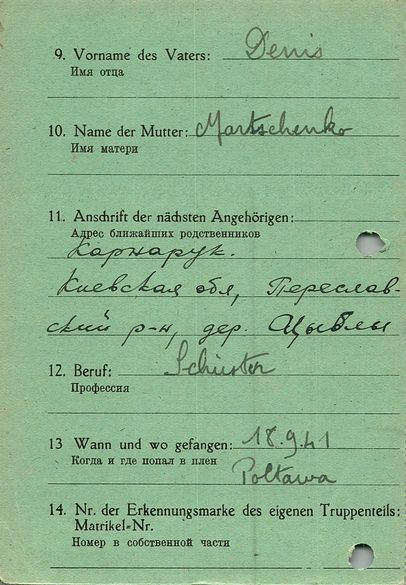 9. Vorname des Vaters: Denis
Имя отца
10. Name der Mutter: Martschenko
Имя матери
11. Anschrift der nächsten Angehörigen:
Адрес ближайших родственников
Карнарук.
Киевская обл, Переслав-
ский р-н, дер. Цыблы
12. Beruf: Schuster
Профессия
13 Wann und wo gefangen: 18.9.41
Когда и где попал в плен
Poltawa
14. Nr. der Erkennungsmarke des eigenen Truppenteils:
Matrikel-Nr.
Номер в собственной части